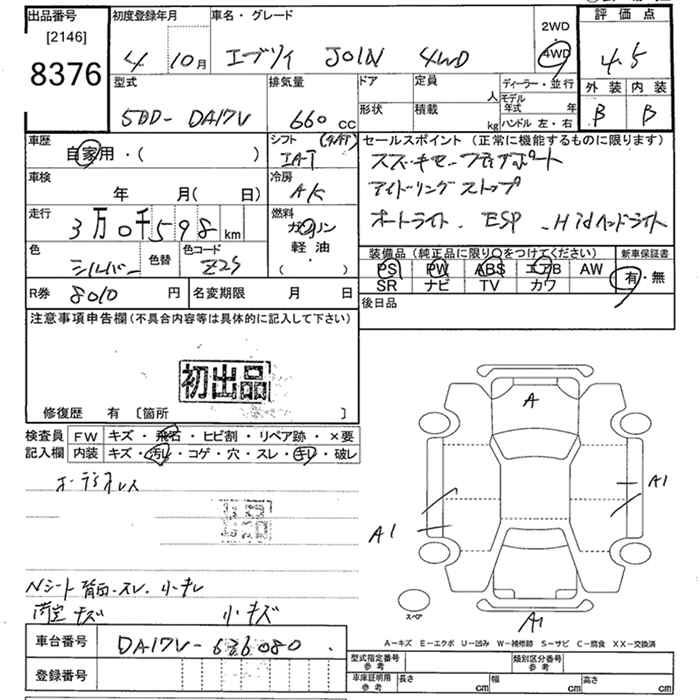 出品番号
[2146]
8376
初度登録年月
4 10月
車名・グレード
エブリイ JOIN 4WD
2WD
4WD
評価点
4.5
外装 内装
B B
型式
5BD- DA17V
排気量
660 cc
ドア
定員
人
形状
積載
kg
ディーラー・並行
モデル年式 年
ハンドル 左・右
車歴
自家用・( )
シフト
IAT
車検
年 月( 日)
冷房
A/C
走行
3万0千598 km
燃料
ガソリン
軽油
( ・ )
色
シルバー
色替
色コード
Z2S
R券 8010 円
名変期限 月 日
セールスポイント (正常に機能するものに限ります)
アイドリングストップ
オートライト . ESP . Hidヘッドライト
装備品 (純正品に限り○をつけてください)
新車保証書
PS PW ABS エアB AW
有・無
SR ナビ TV カワ
後日品
注意事項申告欄(不具合内容等は具体的に記入して下さい)
初出品
修復歴 有 〔箇所 〕
検査員
記入欄
FW キズ・飛石・ヒビ割・リペア跡・×要
内装 キズ・汚レ・コゲ・穴・スレ・キレ・破レ
Nシート背面スレ 小キレ
荷室 キズ 小キズ
A
A1
A1
A1
スペア
A-キズ E-エクボ U-凹み W-補修跡 S-サビ C-腐食 XX-交換済
車台番号 DA17V-636080
登録番号
型式指定番号
参考
類別区分番号
参考
車庫証明用
参考
長さ cm
幅 cm
高さ cm